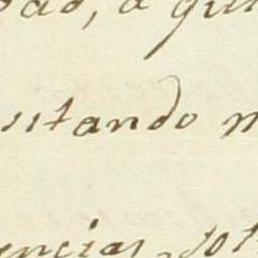 dad, a qu
sitando n
encias, tot